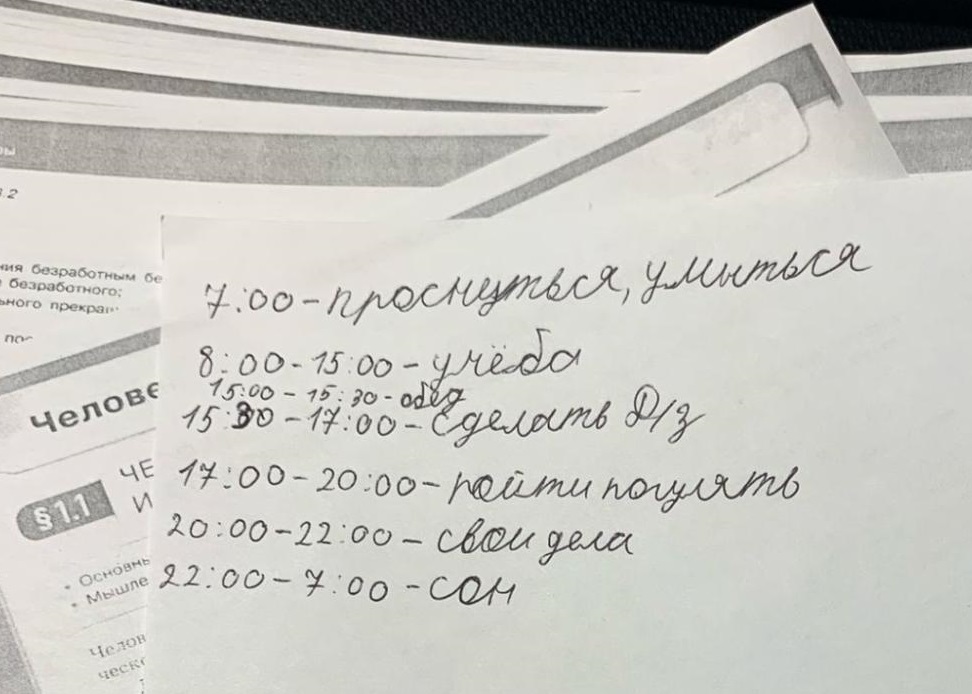 .2
ния безработным бе
безработного;
ьного прекра
по
Челове
§ 1.1
ЧЕ
И
• Основнь
• Мышле
Челов
ческ
7:00-проснуться, умыться
8:00-15:00-учёба
15:00-15:30-обед
15:30-17:00-сделать Д/з
17:00-20:00-пойти погулять
20:00-22:00-свои дела
22:00-7:00-сон